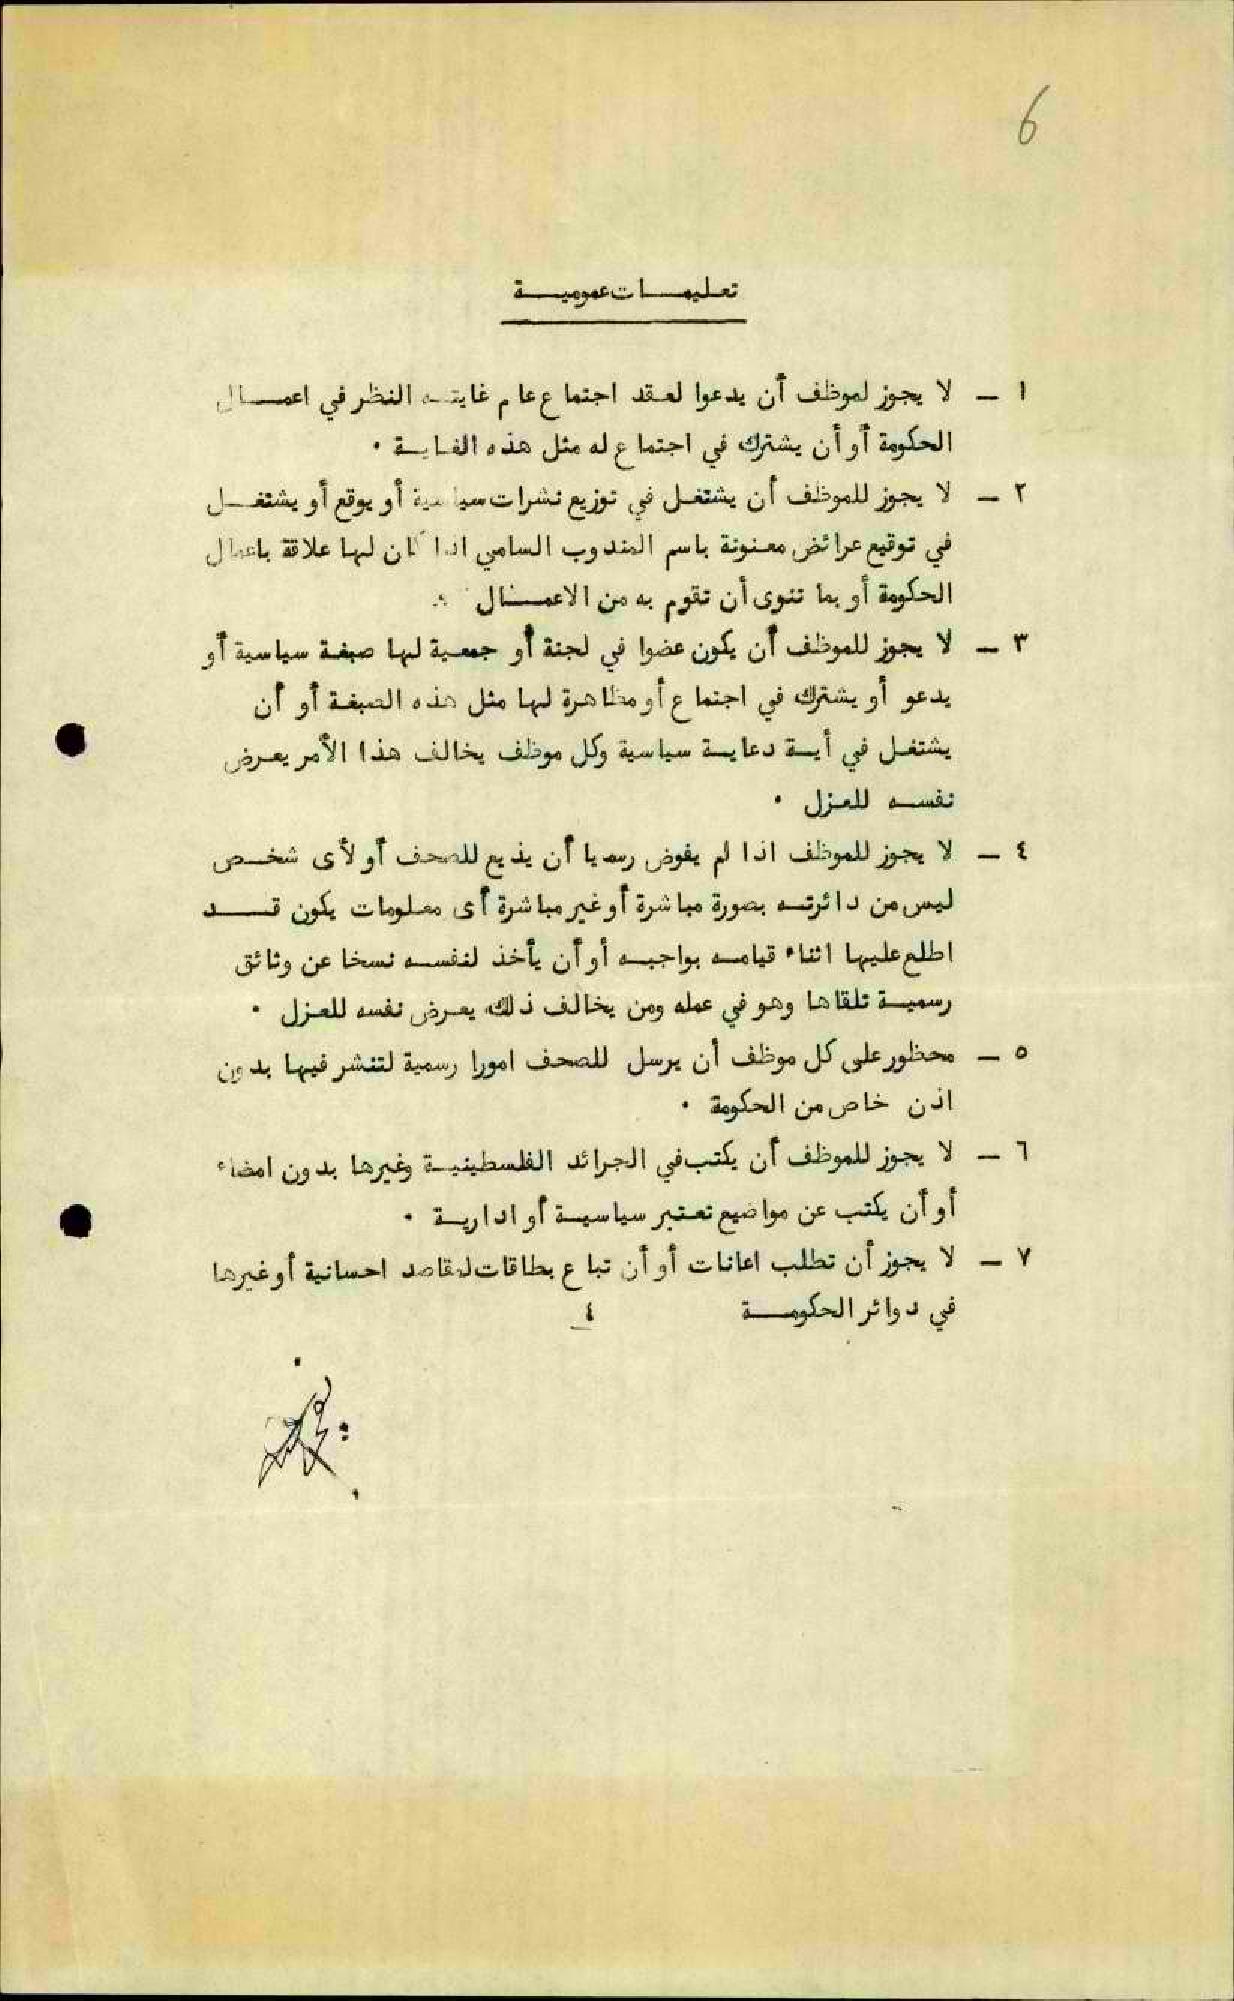 6
تعليمات عمومية
١ - لا يجوز لموظف أن يدعوا لعقد اجتماع عام غايته النظر في اعمال
الحكومة أو أن يشترك في اجتماع له مثل هذه الغاية ٠
٢ - لا يجوز للموظف أن يشتغل في توزيع نشرات سياسية أو يوقع أو يشتغل
في توقيع عرائض معنونة باسم المندوب السامي اذا كان لها علاقة باعمال
الحكومة أو بما تنوى أن تقوم به من الاعمال
٣ - لا يجوز للموظف أن يكون عضوا في لجنة أو جمعية لها صبغة سياسية أو
يدعو أو يشترك في اجتماع أو مظاهرة لها مثل هذه الصبغة أو أن
يشتغل في أية دعاية سياسية وكل موظف يخالف هذا الأمر يعرض
نفسه للعزل ٠
٤ - لا يجوز للموظف اذا لم يفوض رسميا أن يذيع للصحف أو لأى شخص
ليس من دائرته بصورة مباشرة أو غير مباشرة أى معلومات يكون قد
اطلع عليها اثناء قيامه بواجبه أو أن يأخذ لنفسه نسخا عن وثائق
رسمية تلقاها وهو في عمله ومن يخالف ذلك يعرض نفسه للعزل ٠
٥ - محظور على كل موظف أن يرسل للصحف امورا رسمية لتنشر فيها بدون
اذن خاص من الحكومة ٠
٦ - لا يجوز للموظف أن يكتب في الجرائد الفلسطينية وغيرها بدون امضاء
أو أن يكتب عن مواضيع تعتبر سياسية أو ادارية ٠
٧ - لا يجوز أن تطلب اعانات أو أن تباع بطاقات لمقاصد احسانية أو غيرها
في دوائر الحكومة ٤